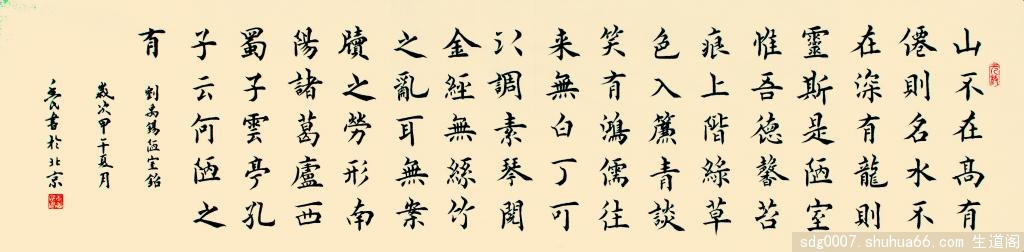 山不在高有
僊則名水不
在深有龍則
靈斯是陋室
惟吾德馨苔
痕上階綠草
色入簾青談
笑有鴻儒往
来無白丁可
以調素琴閱
金經無絲竹
之亂耳無案
牘之勞形南
陽諸葛廬西
蜀子雲亭孔
子云何陋之
有
劉禹錫陋室銘
歲次甲午夏月
書於北京
sdg0007.shuhua66.com 生道阁